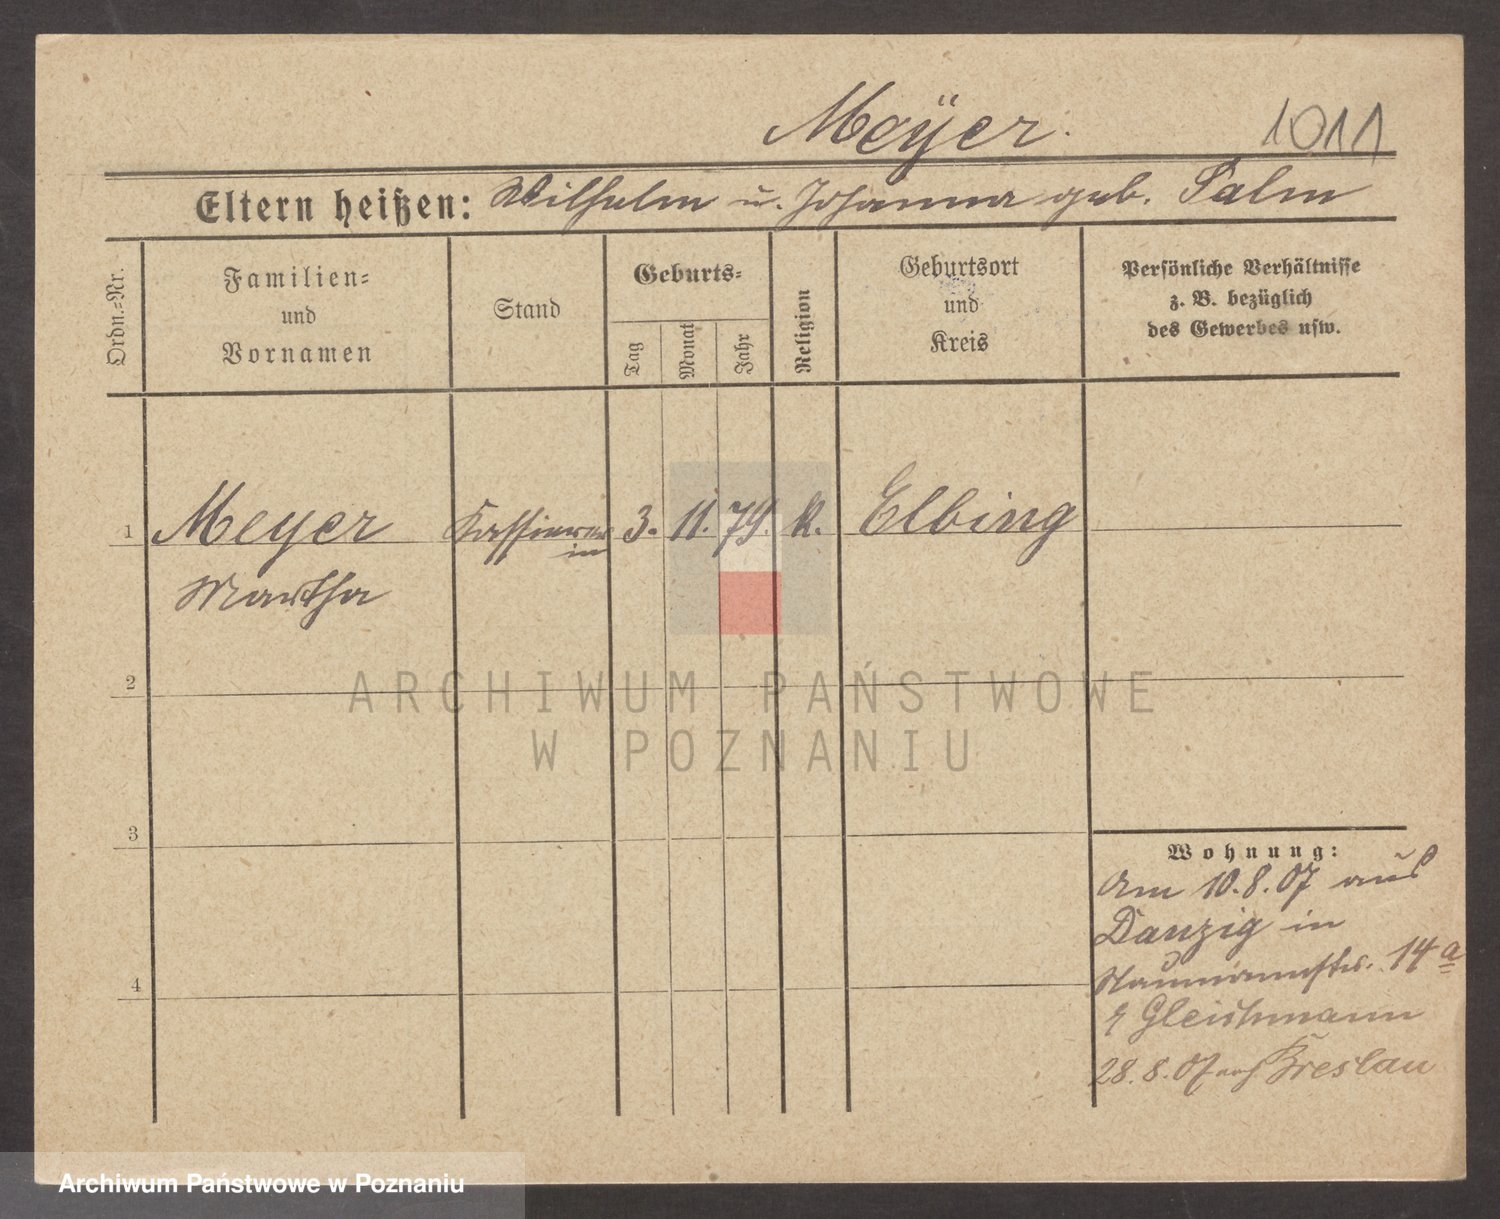 Meÿer.
1011
Eltern heißen: Wilhelm u. Johanna geb. Salm
Ordn.-Nr.
Familien-
und
Vornamen
Stand
Geburts-
Tag
Monat
Jahr
Religion
Geburtsort
und
Kreis
Persönliche Verhältnisse
z. B. bezüglich
des Gewerbes usw.
1 Meyer Kassierer 3. 11. 79. K. Elbing
in
Martha
2
ARCHIWUM PAŃSTWOWE
W POZNANIU
3
Wohnung:
Am 10.8.07 aus
Danzig in
Naumannstr. 14a
Gleichmann
4
28.8.07 nach Breslau
Archiwum Państwowe w Poznaniu